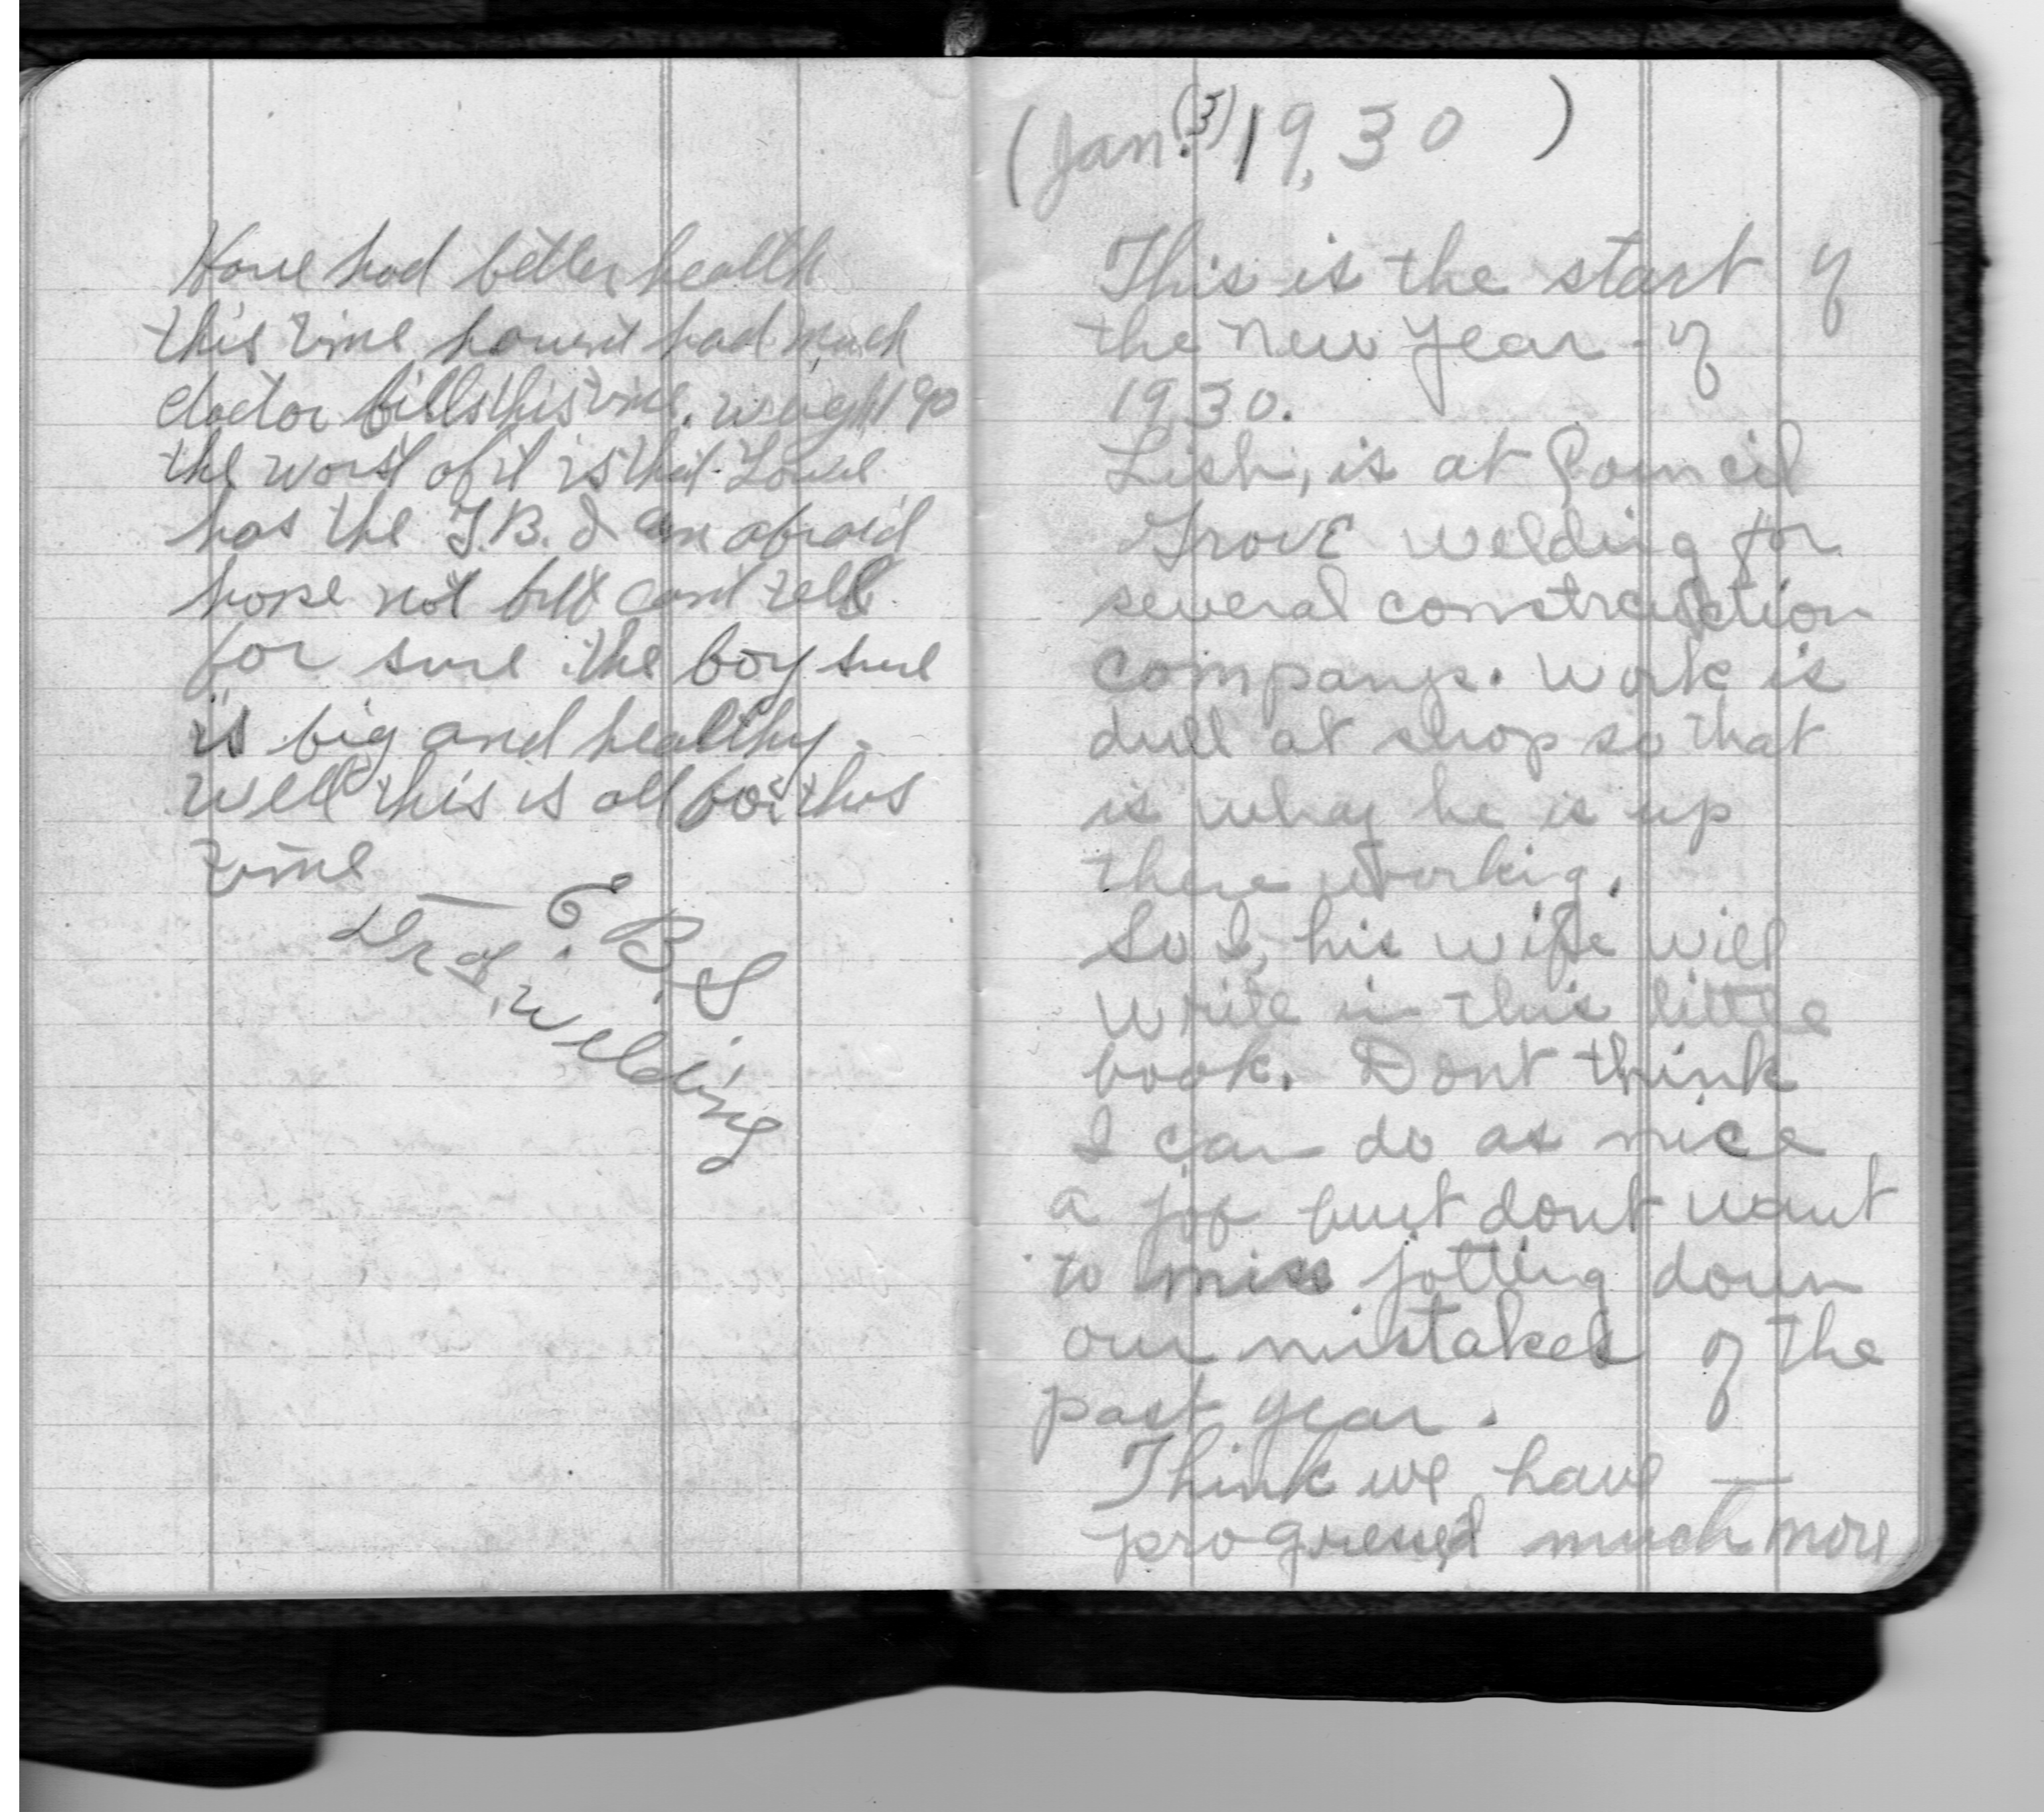 Have had better health
this time havent had much
doctor bills this time. weight 190
the worst of it is that
has the T.B. I am afraid
hope not but cant tell
for sure the boy sure
is big and healthy -
Well this is all for this
time
— E.B.S.
welding
(Jan. (3) 19,30 )
This is the start of
the New Year - of
1930.
Lish, is at Council
Grove welding for
several construction
companys. Work is
dull at shop so that
is whay he is up
there working.
So I, his wife will
write in this little
book. Dont think
I can do as nice
a job but dont want
to miss jotting down
our mistakes of the
past year.
Think we have —
progressed much more